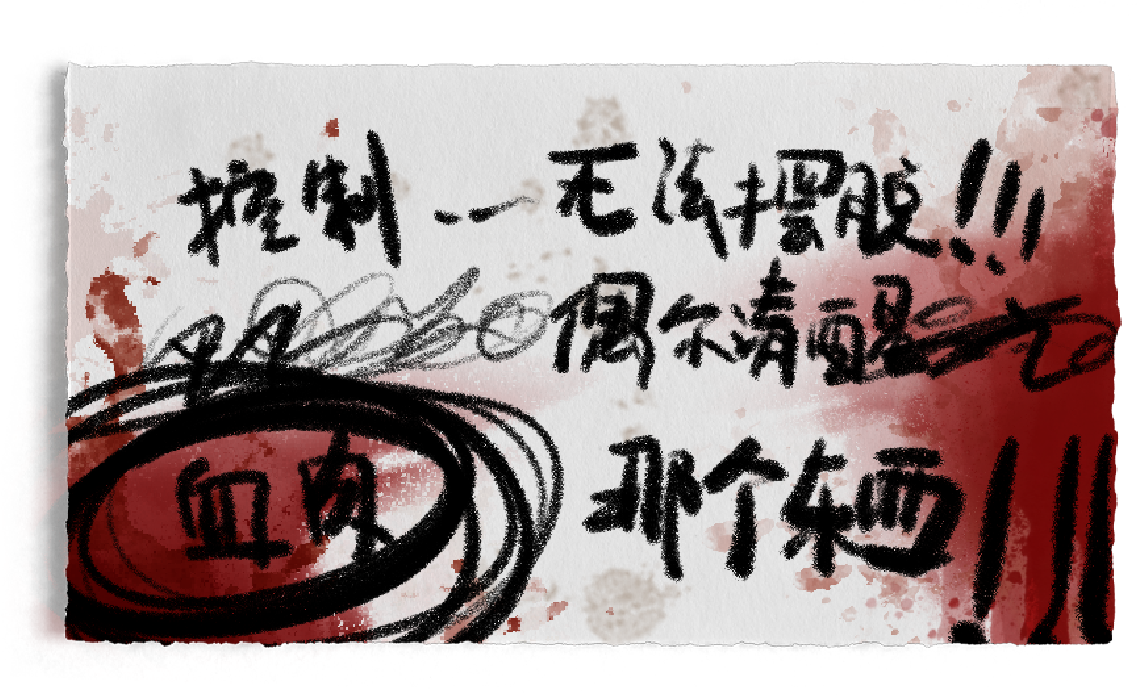 控制——无法摆脱!!!
偶尔清醒
血肉 那个东西!!!